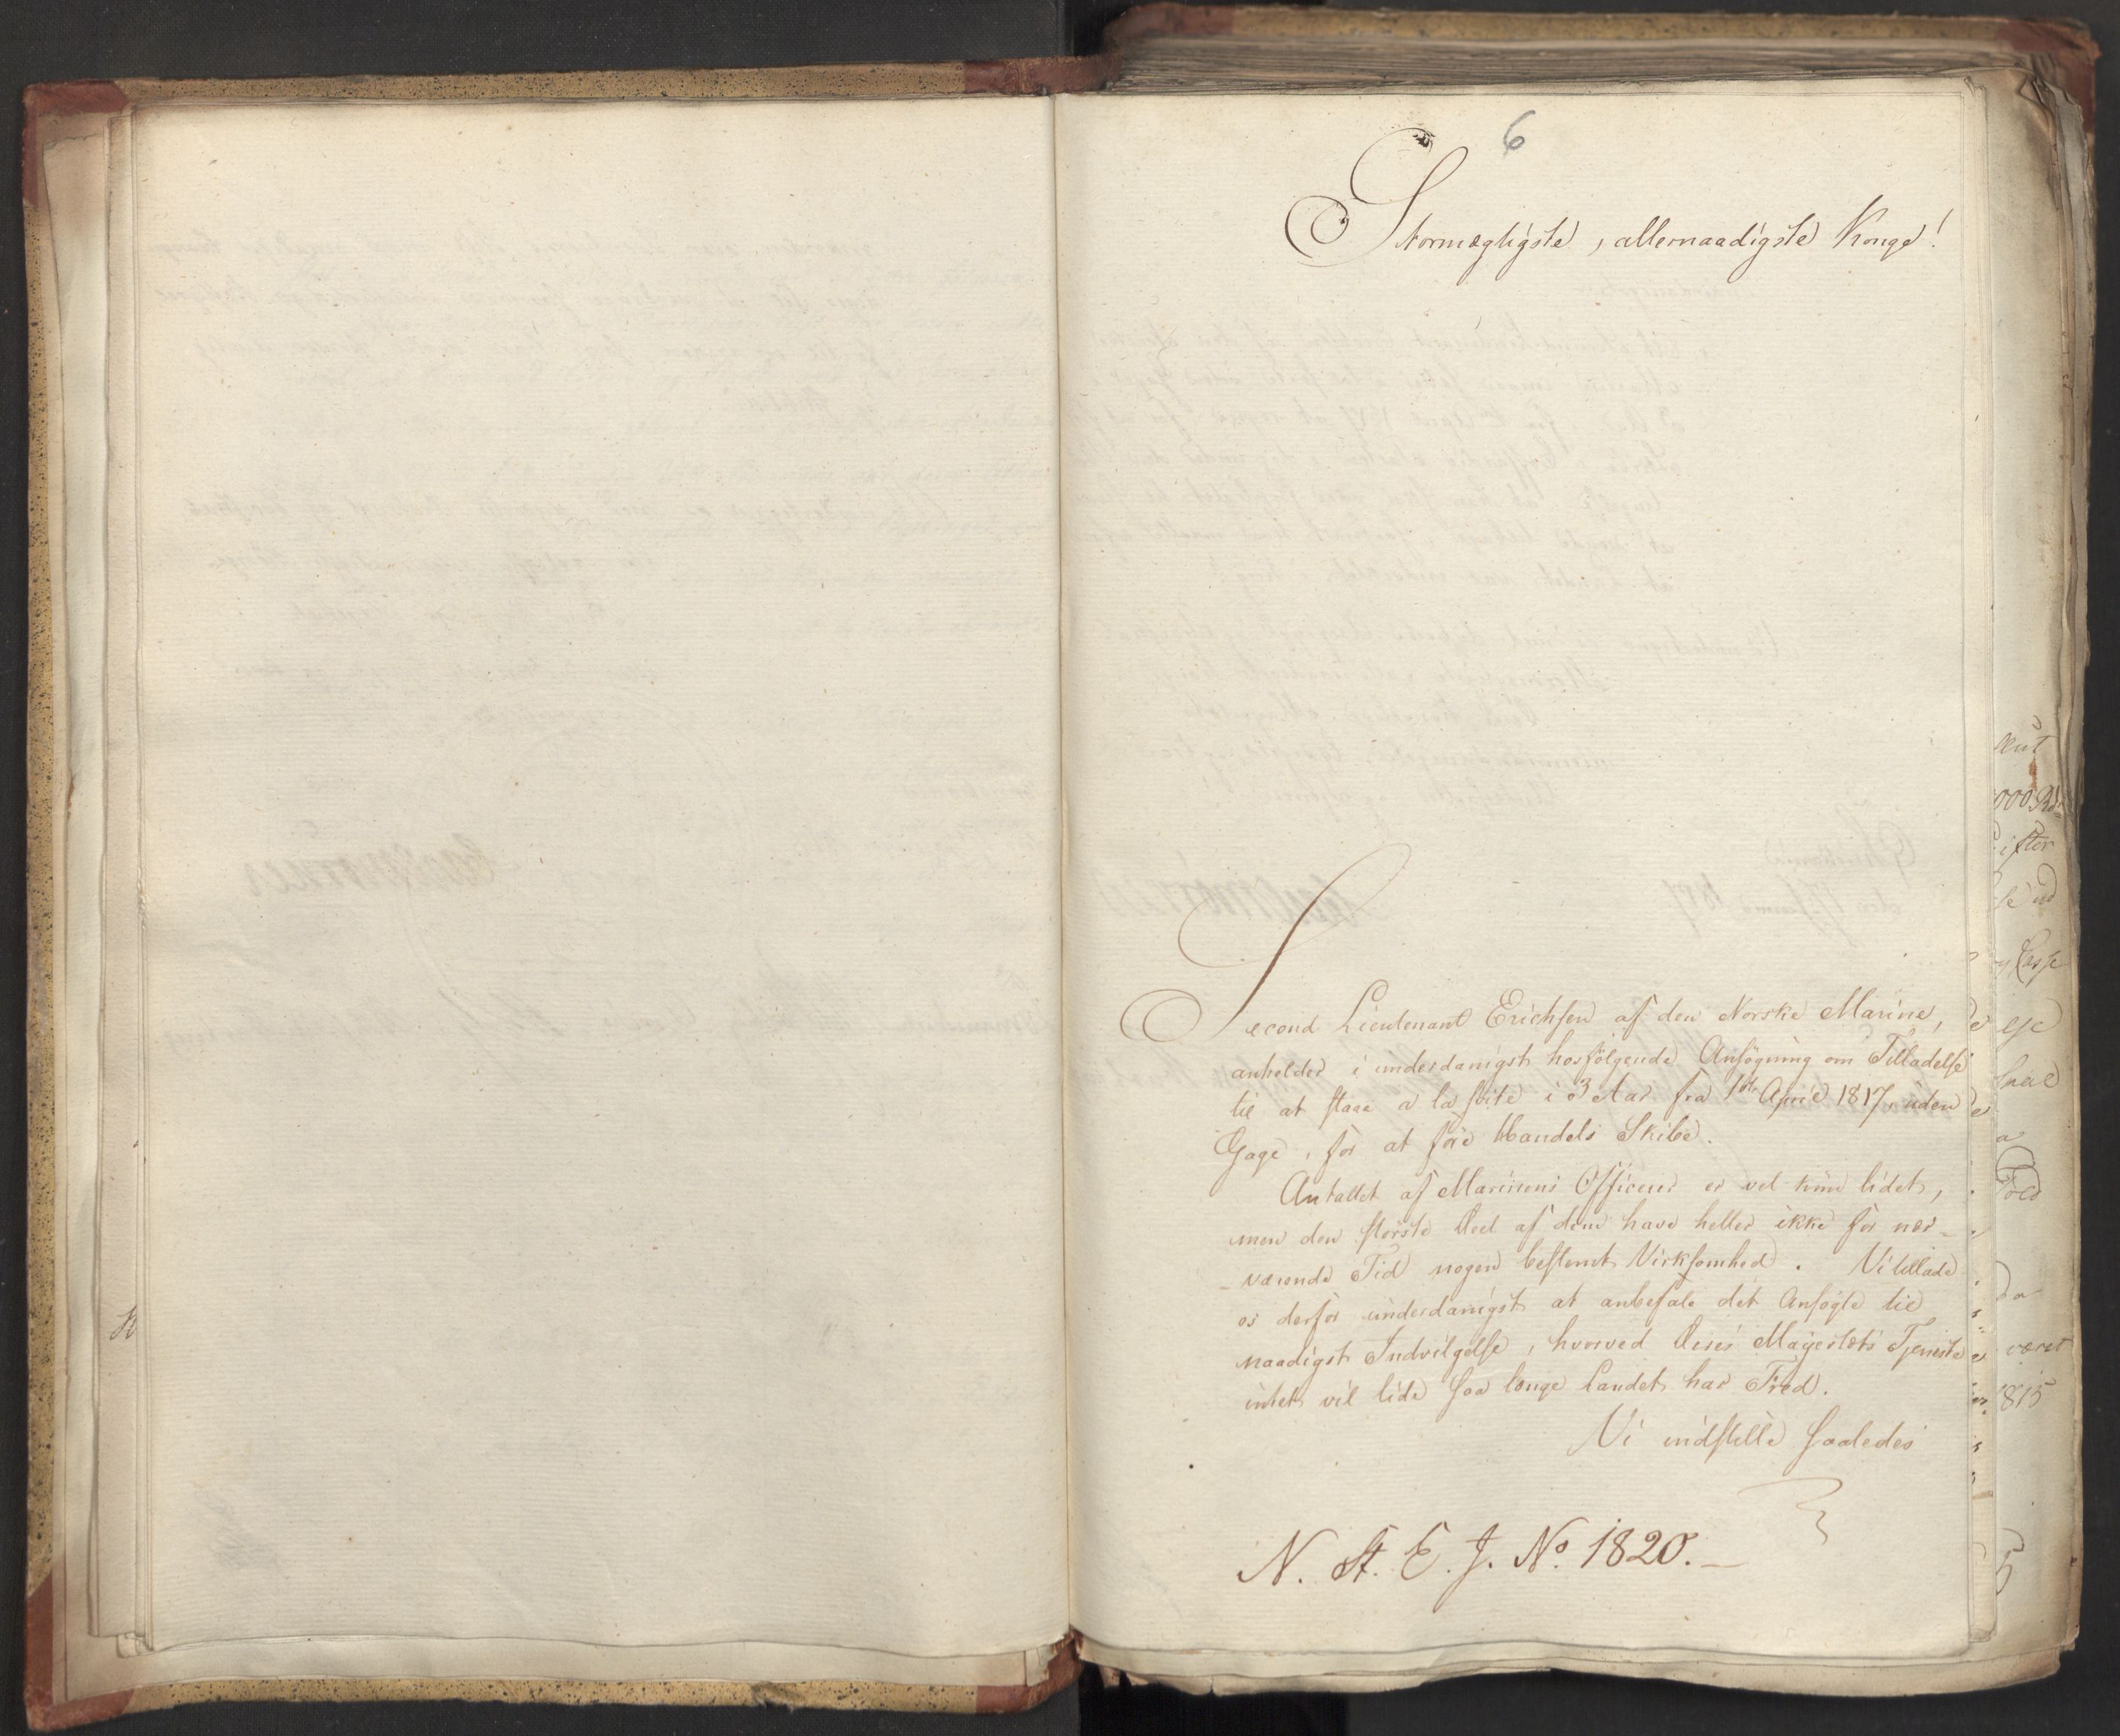 6
Stormægtigste, allernaadigste Konge!
Second Lieutenant Erichsen af den Norske Marine,
anholder i underdanigst hosfölgende Ansögning om Tilladelse
til at staae a la suite i 3 Aar fra 1ste April 1817, uden
Gage, for at före Handels Skibe.
Antallet af Marinens Officerer er vel kun lidet,
men den störste Deel af dem have heller ikke for nær-
-værende Tid nogen bestemt Virksomhed. Vi tillade
os derfor underdanigst at anbefale det Ansögte til
naadigst Indvilgelse, hvorved Deres Majestæts Tjeneste
intet vil lide saa længe Landet har Fred.
Vi indstille saaledes
N. St. E. J. No. 1820.-
000 Rd
efter
Casse
været
1815